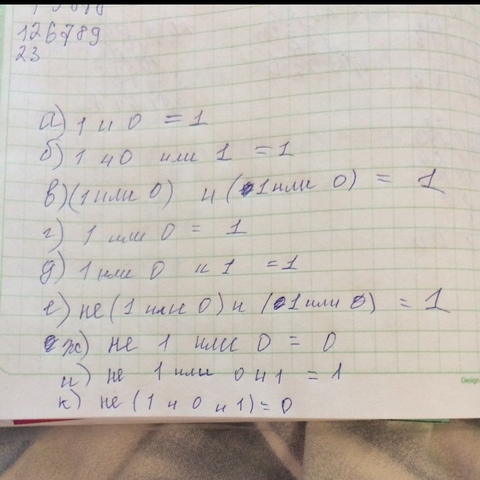 126789
23
а) 1 и 0 = 1
б) 1 и 0 или 1 = 1
в) (1 или 0) и (1 или 0) = 1
г) 1 или 0 = 1
д) 1 или 0 и 1 = 1
е) не (1 или 0) и (1 или 0) = 1
ж) не 1 или 0 = 0
и) не 1 или 0 и 1 = 1
к) не (1 и 0 и 1) = 0
Design